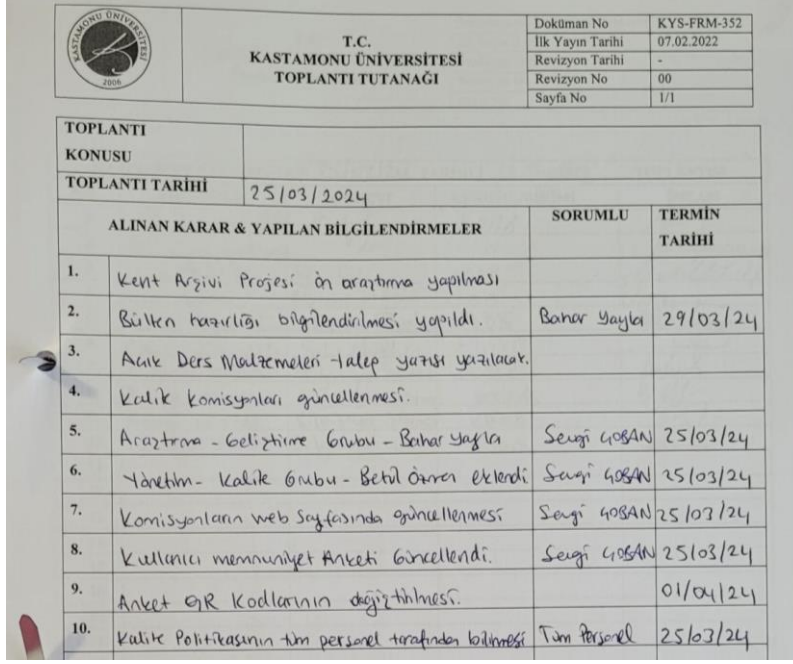 KASTAMONU ÜNİVERSİTESİ
2006
T.C.
KASTAMONU ÜNİVERSİTESİ
TOPLANTI TUTANAĞI
Doküman No KYS-FRM-352
İlk Yayın Tarihi 07.02.2022
Revizyon Tarihi -
Revizyon No 00
Sayfa No 1/1
TOPLANTI
KONUSU
TOPLANTI TARİHİ 25/03/2024
ALINAN KARAR & YAPILAN BİLGİLENDİRMELER SORUMLU TERMİN
TARİHİ
1. Kent Arşivi Projesi ön araştırma yapılması
2. Bülten hazırlığı bilgilendirilmesi yapıldı. Bahar Yayla 29/03/24
3. Açık Ders Malzemeleri talep yazısı yazılacak.
4. Kalite Komisyonları güncellenmesi.
5. Araştırma - Geliştirme Grubu - Bahar Yayla Sevgi ÇOBAN 25/03/24
6. Yönetim - Kalite Grubu - Betül eklendi Sevgi ÇOBAN 25/03/24
7. Komisyonların web sayfasında güncellenmesi Sevgi ÇOBAN 25/03/24
8. Kullanıcı memnuniyet Anketi Güncellendi. Sevgi ÇOBAN 25/03/24
9. Anket QR Kodlarının değiştirilmesi. 01/04/24
10. Kalite Politikasının tüm personel tarafından bilinmesi Tüm Personel 25/03/24